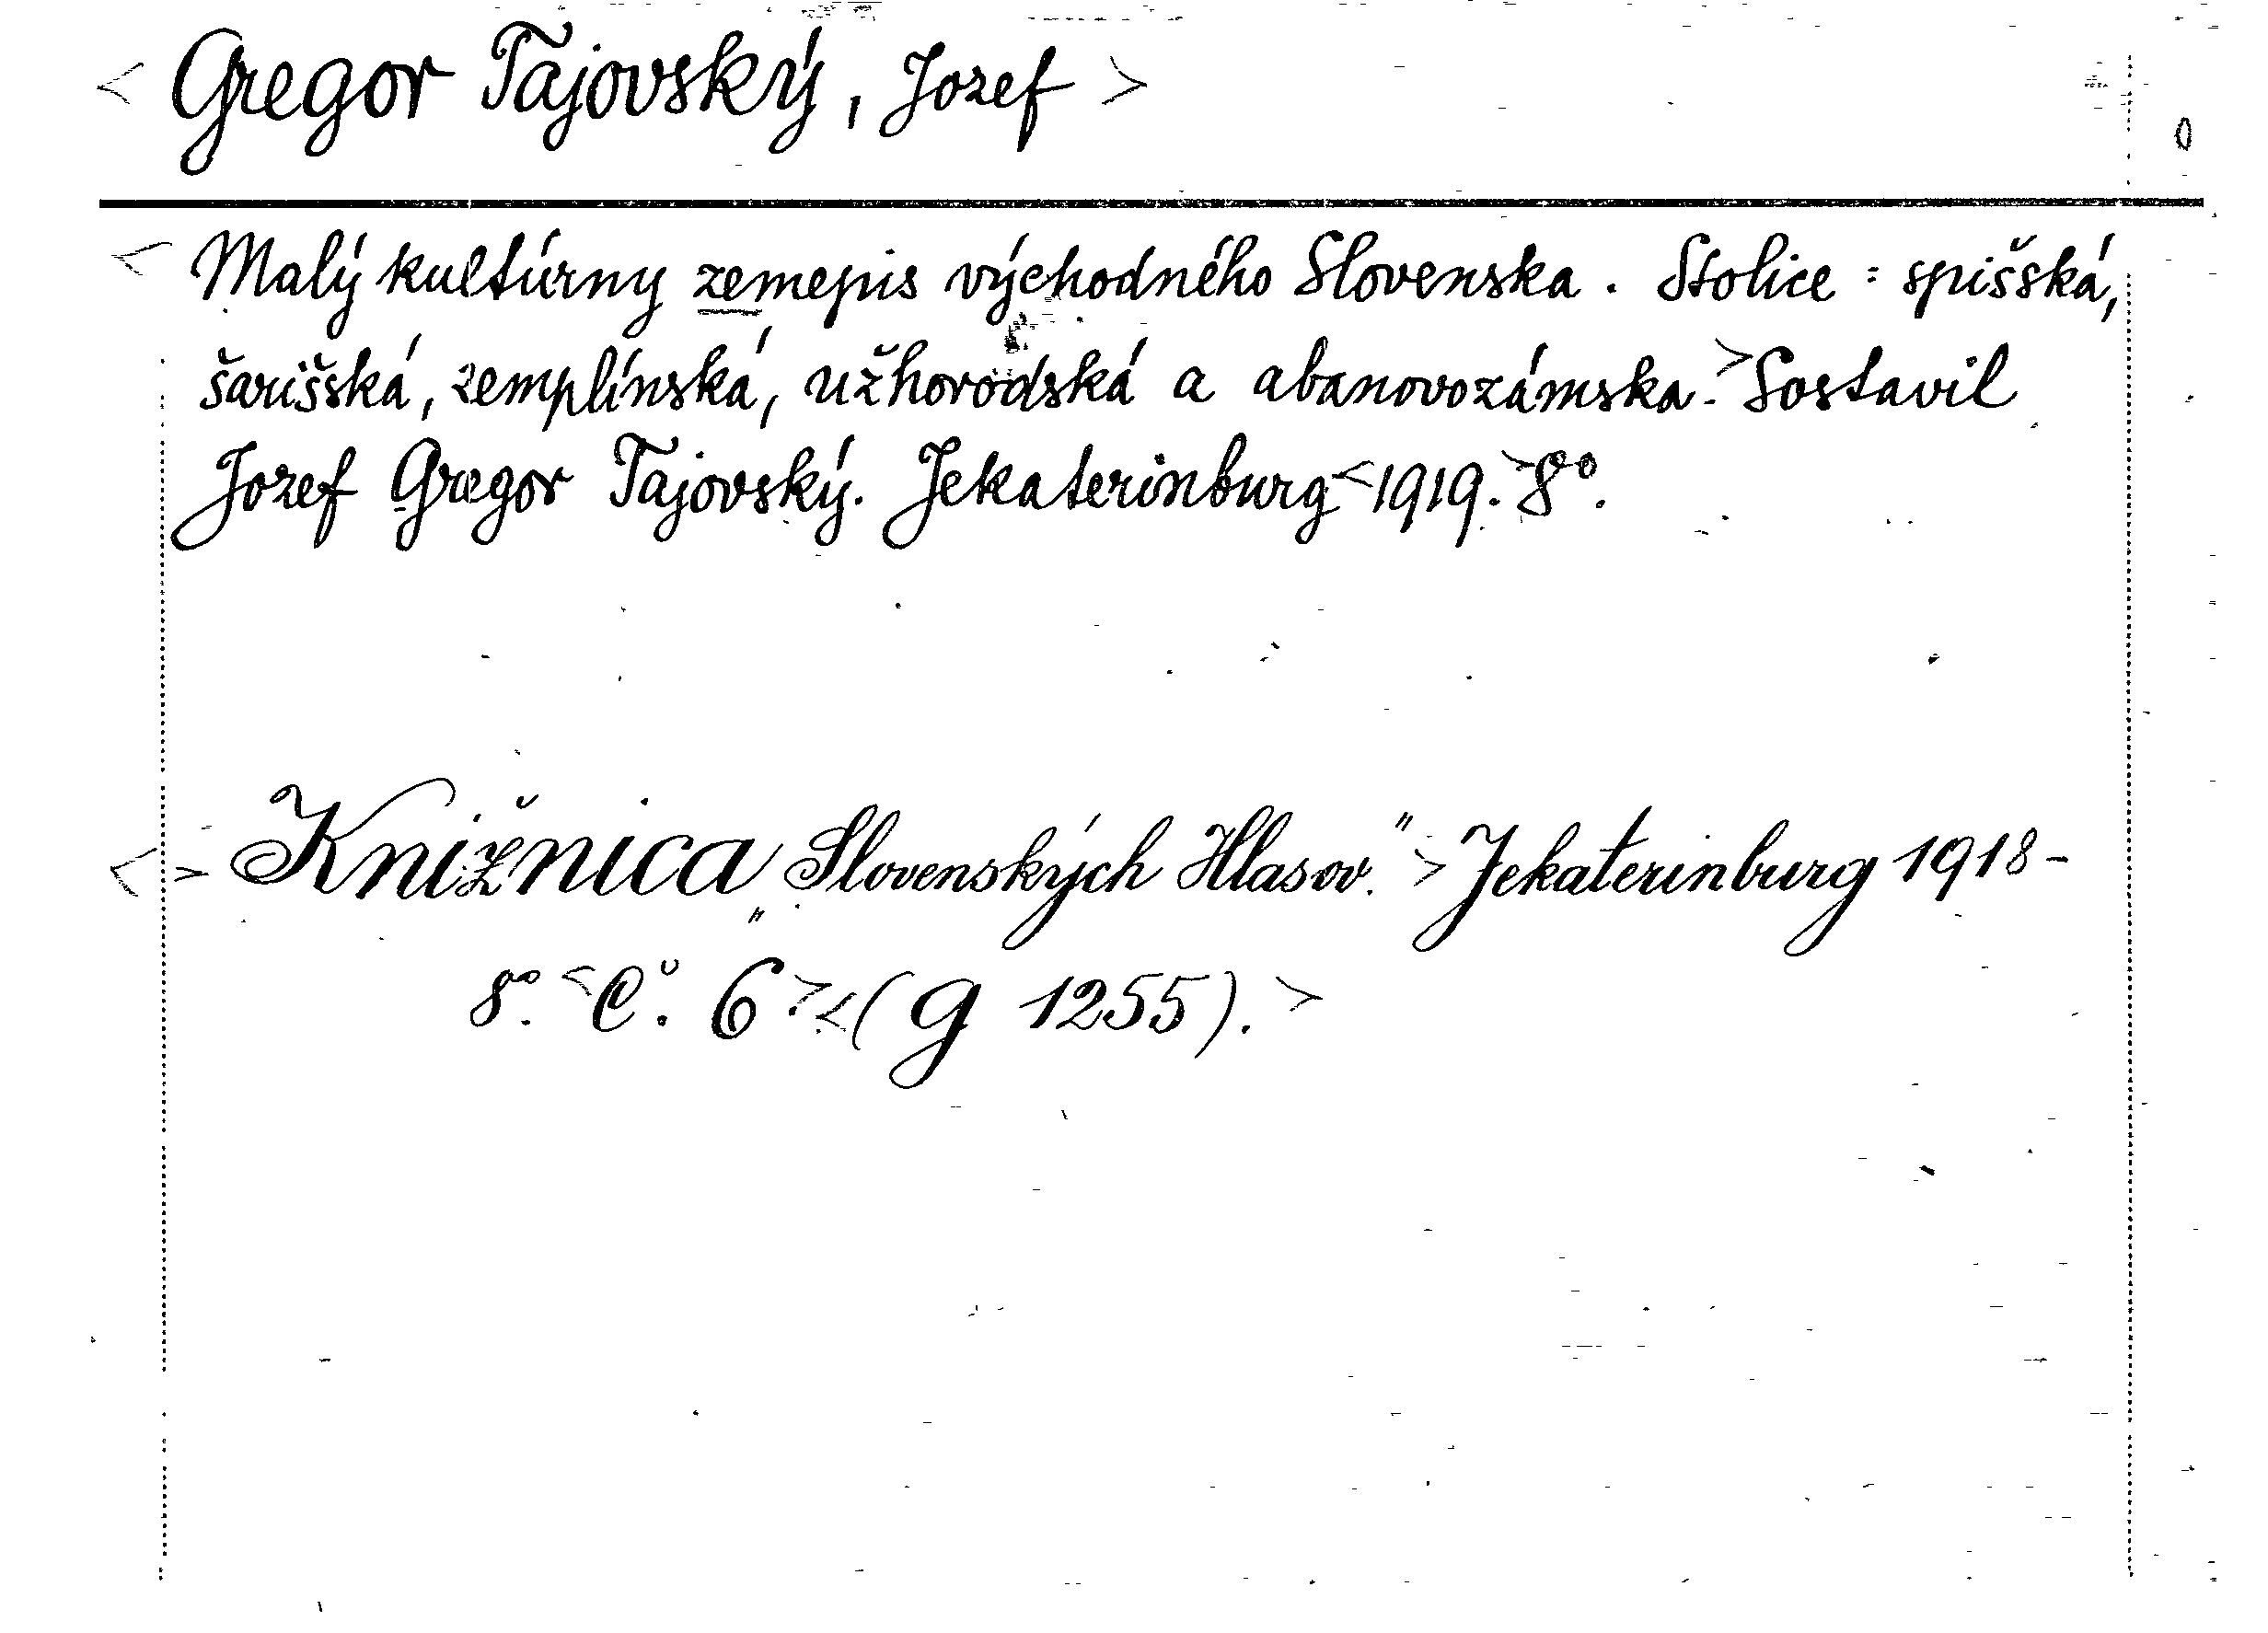 < Gregor Tajovský, Jozef >
< Malý kultúrny zemepis východného Slovenska. Stolice: spišská,
šarišská, zemplínská, užhorodská a abanovozámska. > Sostavil
Jozef Gregor Tajovský. Jekaterinburg < 1919. > 8°.
< > Knižnica „Slovenských Hlasov." > Jekaterinburg 1918-
8°. < Č. 6 > < (g 1255). >